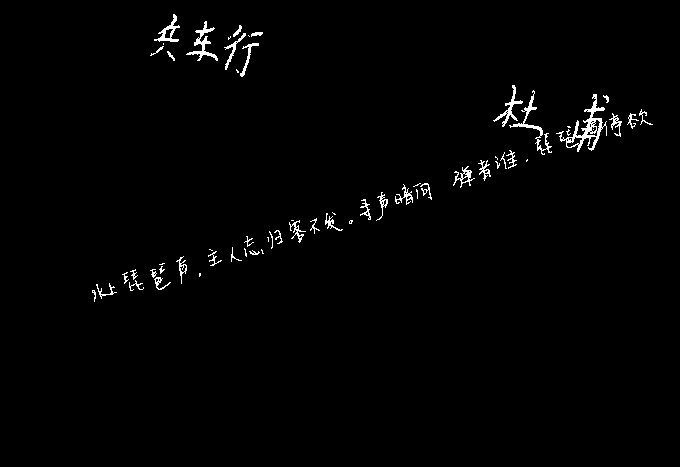 兵车行
杜甫
水上琵琶声，主人忘归客不发。寻声暗问 弹者谁，琵琶声停欲